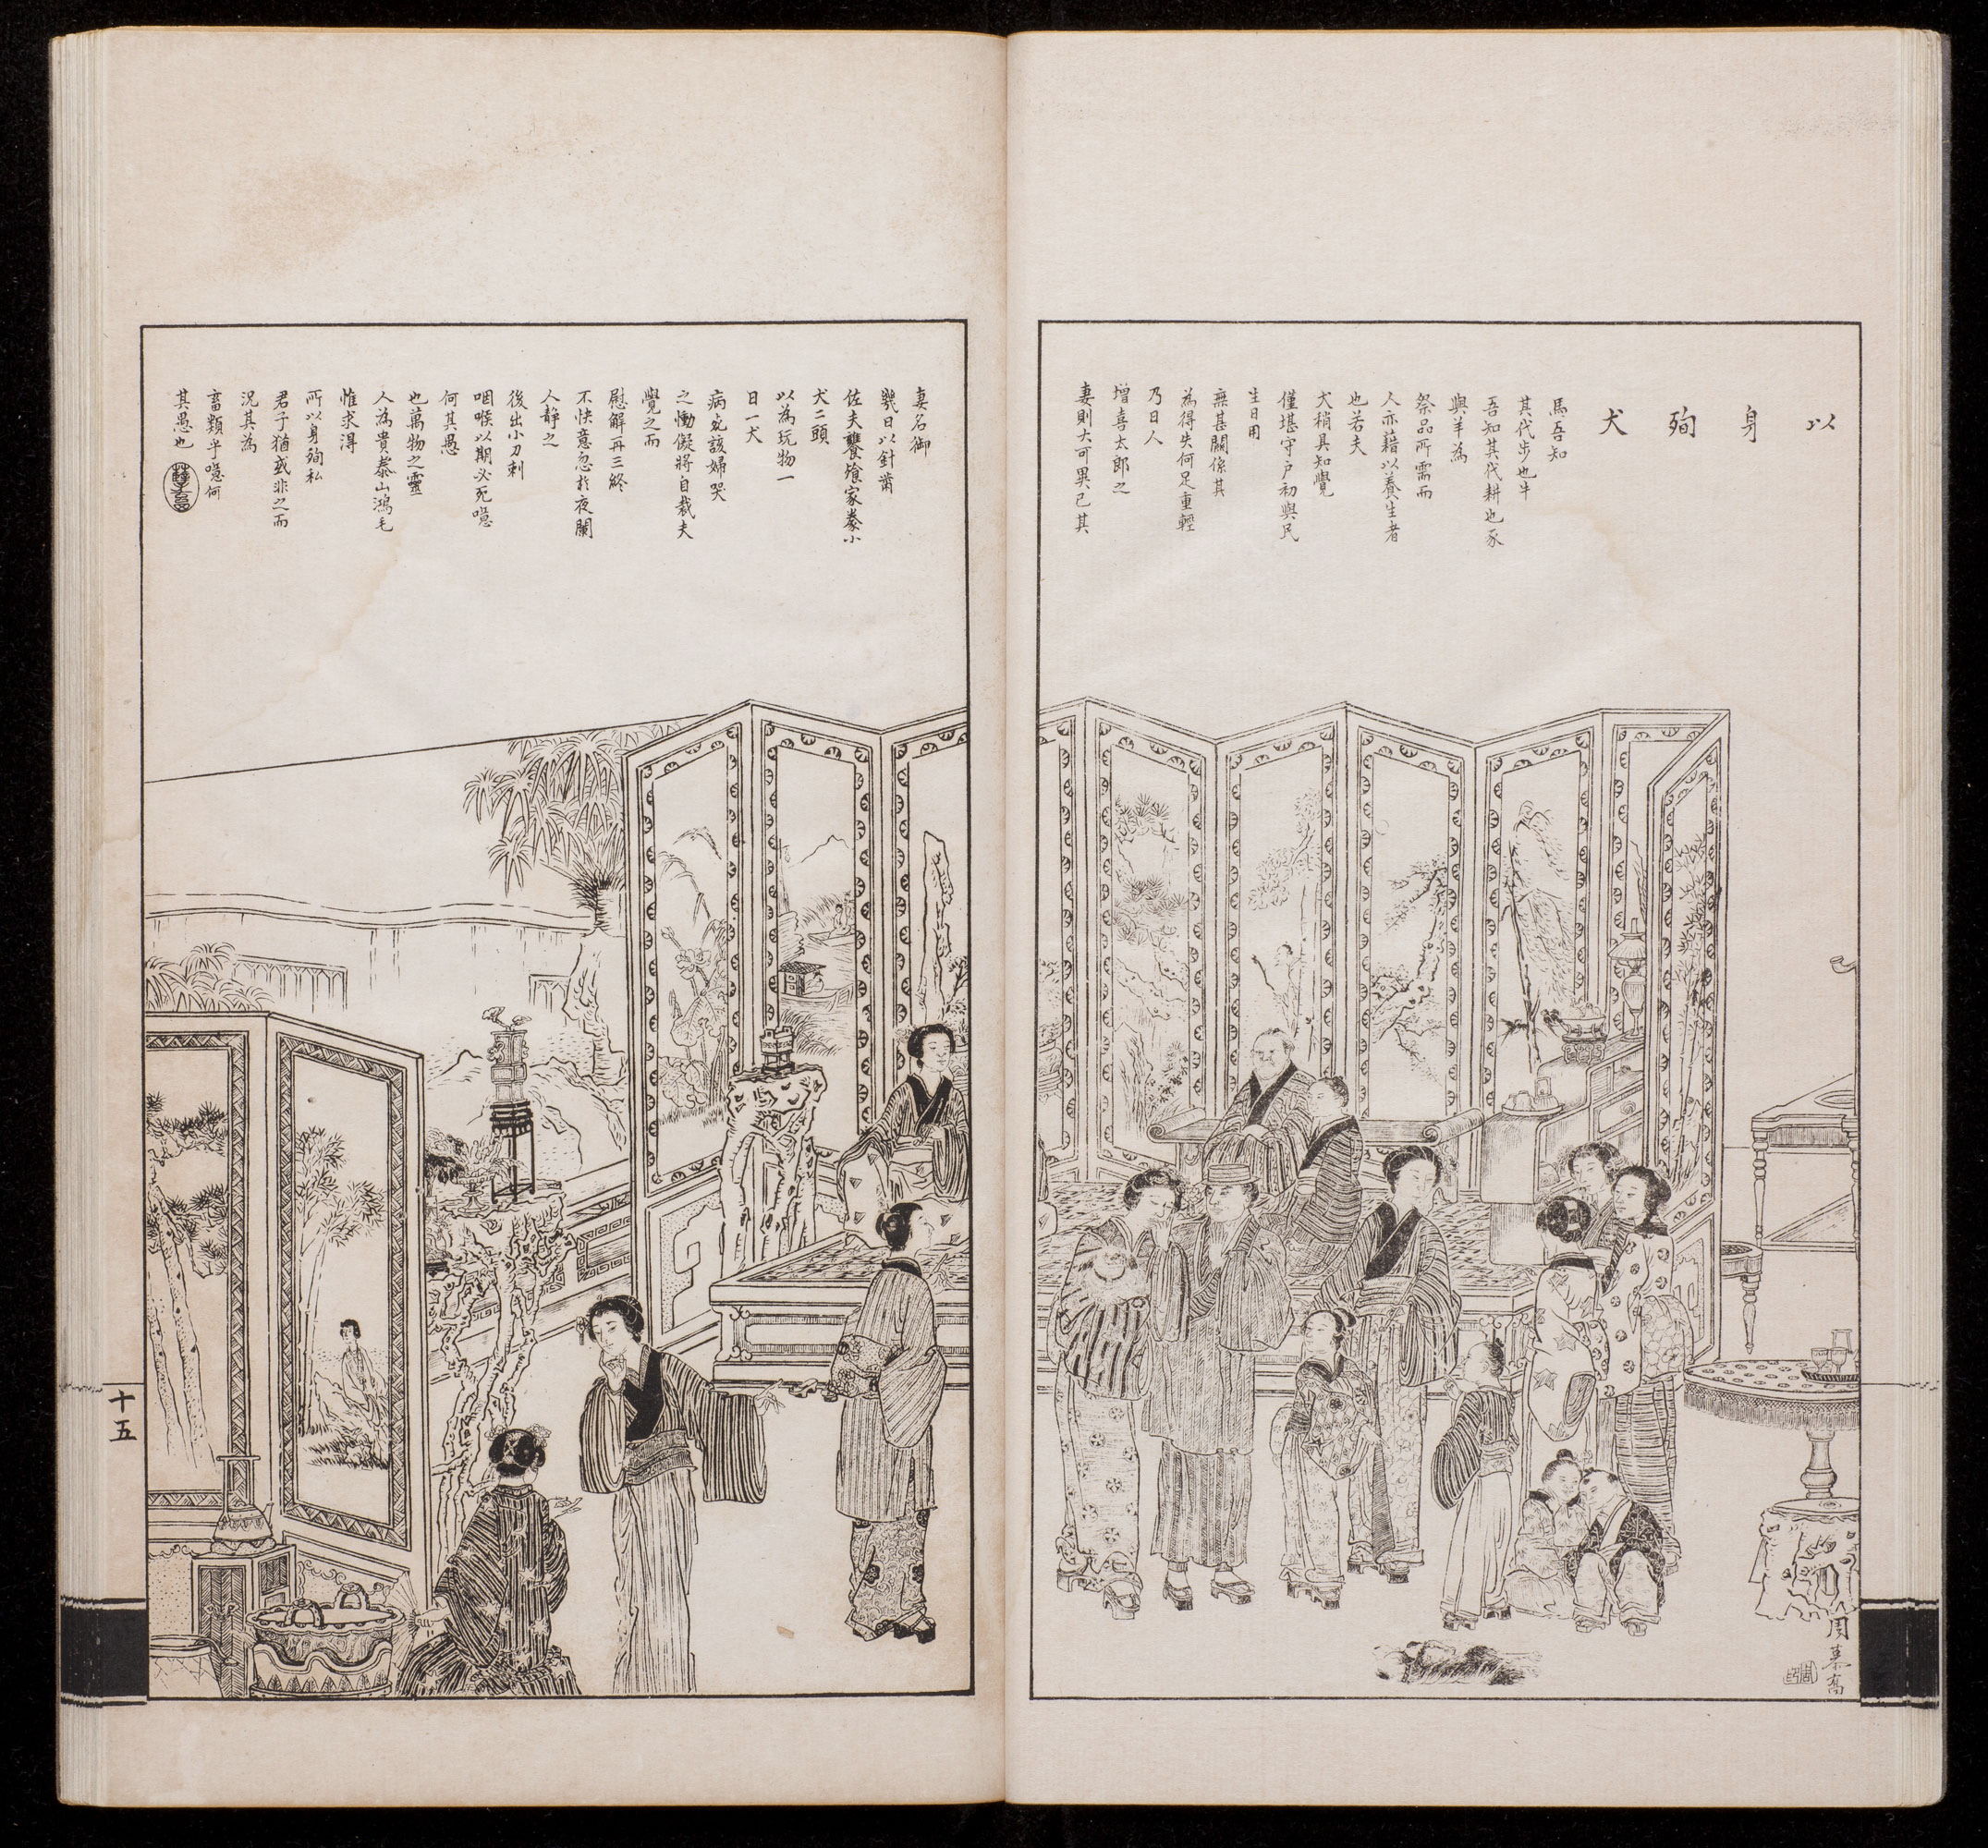 以身殉犬
馬吾知
其代步也牛
吾知其代耕也豕
與羊為
祭品所需而
人亦藉以養生者
也若夫
犬稍具知覺
僅堪守戶初與民
生日用
無甚關係其
為得失何足重輕
乃日人
增喜太郎之
妻則大可異已其
妻名御
幾日以針黹
佐夫饔飧家豢小
犬二頭
以為玩物一
日一犬
病死該婦哭
之慟儗將自裁夫
覺之而
慰解再三終
不快意忽於夜闌
人靜之
後出小刀刺
咽喉以期必死噫
何其愚
也萬物之靈
人為貴泰山鴻毛
惟求得
所以身殉私
君子猶或非之而
況其為
畜類乎噫何
其愚也
周慕喬
十五